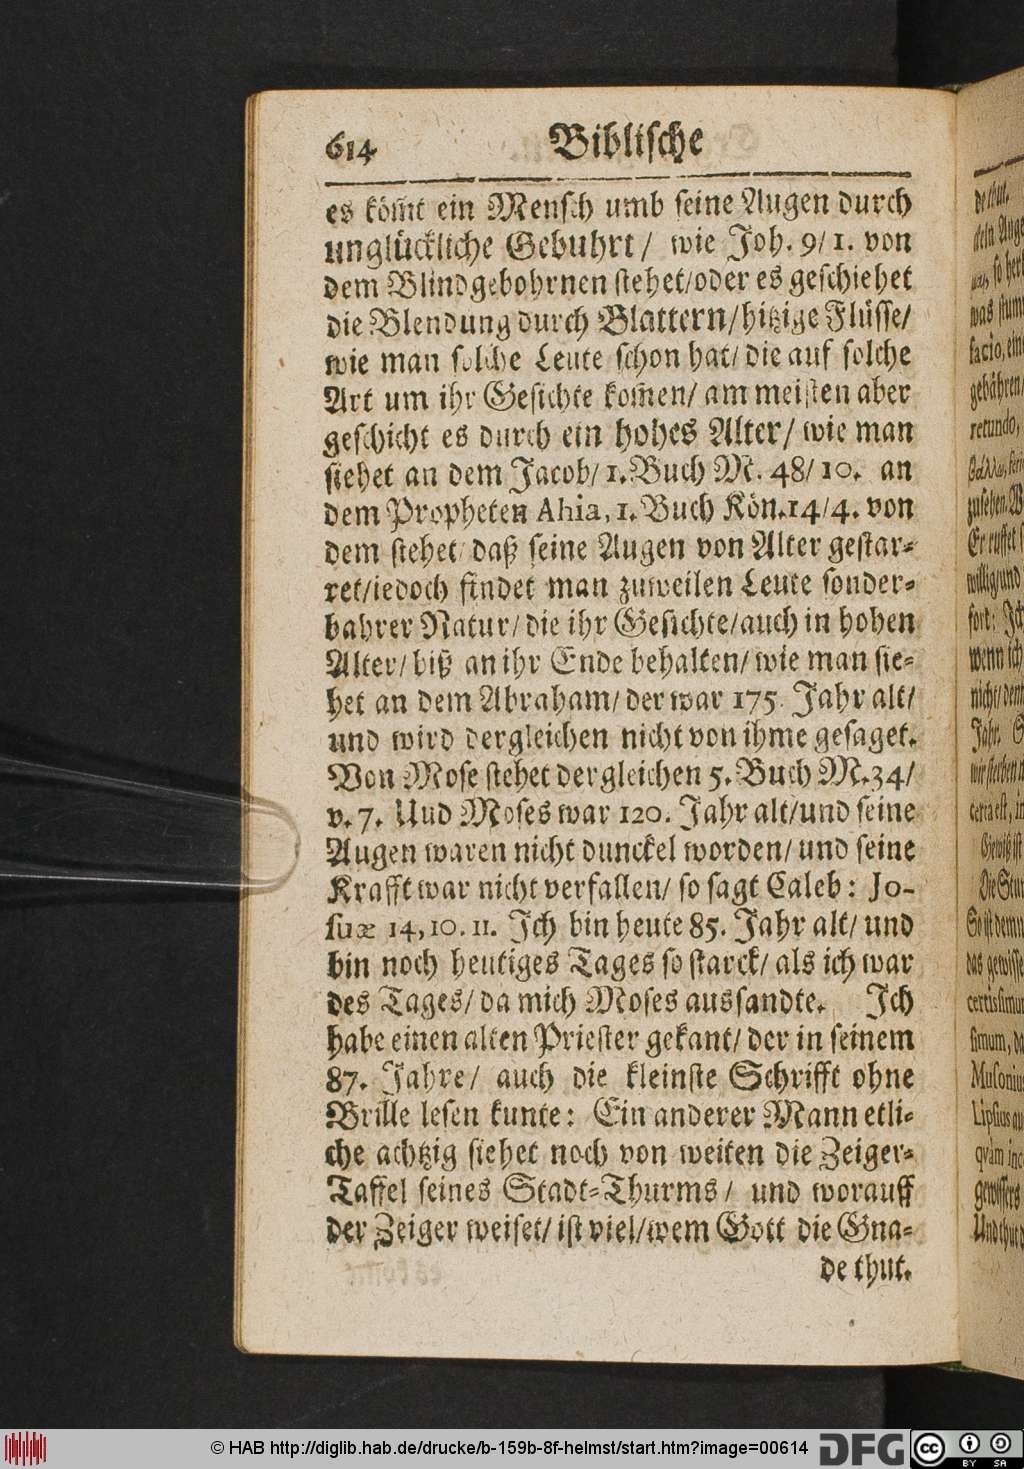 614 Biblische
es köm̃t ein Mensch umb seine Augen durch
unglückliche Gebuhrt/ wie Joh. 9/1. von
dem Blindgebohrnen stehet/oder es geschiehet
die Blendung durch Blattern/hitzige Flüsse/
wie man solche Leute schon hat/ die auf solche
Art um ihr Gesichte kom̃en/ am meisten aber
geschicht es durch ein hohes Alter/ wie man
siehet an dem Jacob/ 1. Buch M. 48/10. an
dem Propheten Ahia, 1. Buch Kön. 14/4. von
dem stehet/ daß seine Augen von Alter gestar-
ret/iedoch findet man zuweilen Leute sonder-
bahrer Natur/ die ihr Gesichte/auch in hohen
Alter/ biß an ihr Ende behalten/ wie man sie-
het an dem Abraham/ der war 175. Jahr alt/
und wird dergleichen nicht von ihme gesaget.
Von Mose stehet dergleichen 5. Buch M. 34/
v. 7. Und Moses war 120. Jahr alt/und seine
Augen waren nicht dunckel worden/ und seine
Krafft war nicht verfallen/ so sagt Caleb: Jo-
suæ 14, 10. 11. Ich bin heute 85. Jahr alt/ und
bin noch heutiges Tages so starck/ als ich war
des Tages/ da mich Moses aussandte. Ich
habe einen alten Priester gekant/ der in seinem
87. Jahre/ auch die kleinste Schrifft ohne
Brille lesen kunte: Ein anderer Mann etli-
che achtzig siehet noch von weiten die Zeiger-
Taffel seines Stadt-Thurms/ und worauff
der Zeiger weiset/ ist viel/wem Gott die Gna-
de thut.
© HAB http://diglib.hab.de/drucke/b-159b-8f-helmst/start.htm?image=00614 DFG cc BY SA